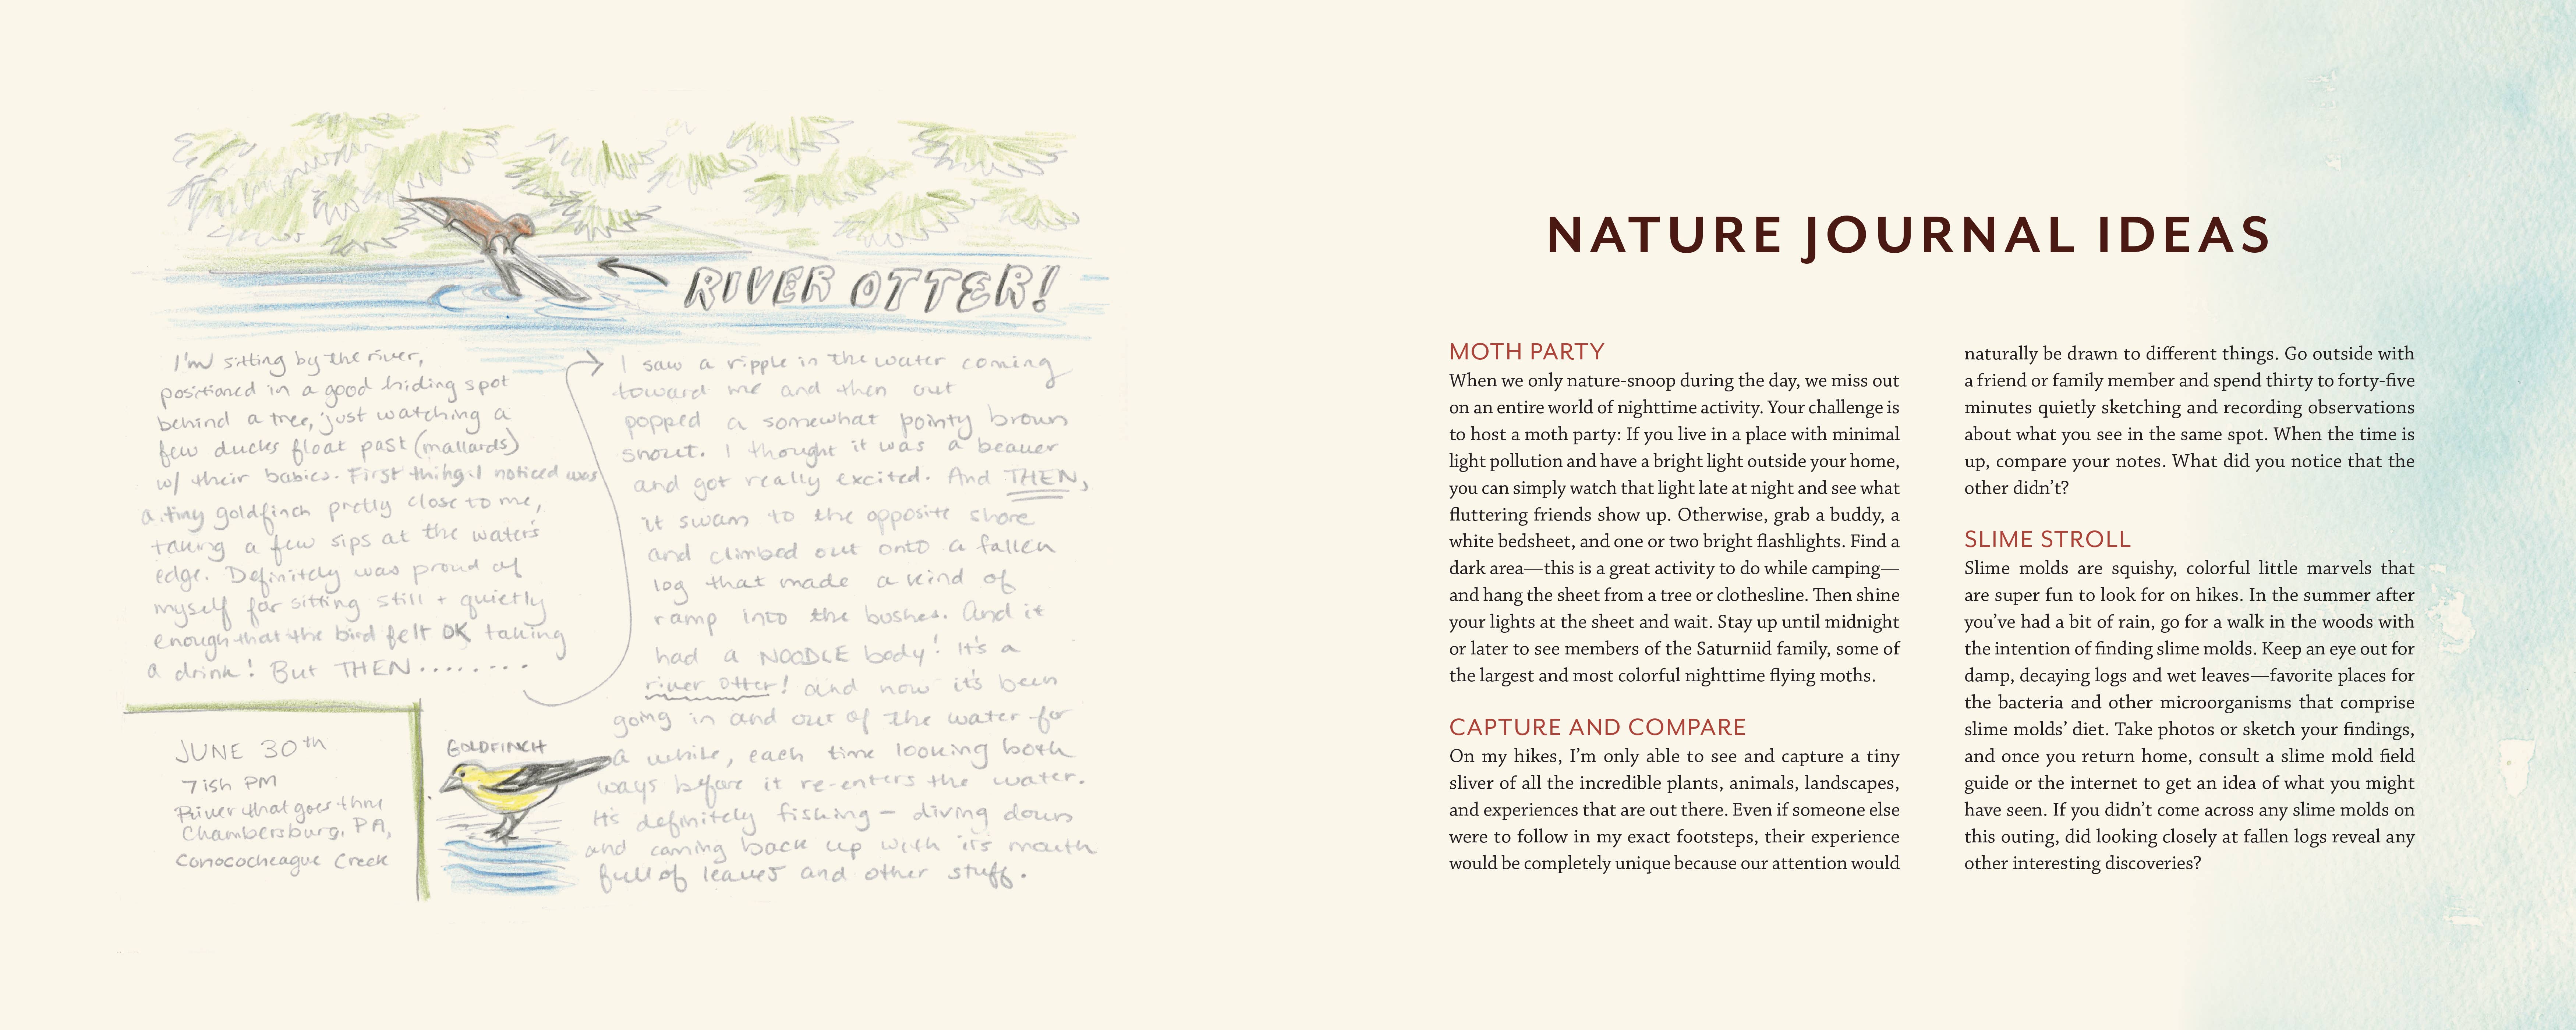 RIVER OTTER!
I'm sitting by the river,
positioned in a good hiding spot
behind a tree, just watching a
few ducks float past (mallards)
w/ their babies. First thing I noticed was
a tiny goldfinch pretty close to me,
taking a few sips at the water's
edge. Definitely was proud of
myself for sitting still + quietly
enough that the bird felt OK taking
a drink! But THEN........
I saw a ripple in the water coming
toward me and then out
popped a somewhat pointy brown
snout. I thought it was a beaver
and got really excited. And THEN,
it swam to the opposite shore
and climbed out onto a fallen
log that made a kind of
ramp into the bushes. And it
had a NOODLE body! It's a
river otter! and now it's been
going in and out of the water for
a while, each time looking both
ways before it re-enters the water.
It's definitely fishing – diving down
and coming back up with its mouth
full of leaves and other stuff.
JUNE 30th
7ish PM
River that goes thru
Chambersburg, PA,
Conococheague Creek
GOLDFINCH
NATURE JOURNAL IDEAS
MOTH PARTY
When we only nature-snoop during the day, we miss out
on an entire world of nighttime activity. Your challenge is
to host a moth party: If you live in a place with minimal
light pollution and have a bright light outside your home,
you can simply watch that light late at night and see what
fluttering friends show up. Otherwise, grab a buddy, a
white bedsheet, and one or two bright flashlights. Find a
dark area—this is a great activity to do while camping—
and hang the sheet from a tree or clothesline. Then shine
your lights at the sheet and wait. Stay up until midnight
or later to see members of the Saturniid family, some of
the largest and most colorful nighttime flying moths.
CAPTURE AND COMPARE
On my hikes, I'm only able to see and capture a tiny
sliver of all the incredible plants, animals, landscapes,
and experiences that are out there. Even if someone else
were to follow in my exact footsteps, their experience
would be completely unique because our attention would
naturally be drawn to different things. Go outside with
a friend or family member and spend thirty to forty-five
minutes quietly sketching and recording observations
about what you see in the same spot. When the time is
up, compare your notes. What did you notice that the
other didn't?
SLIME STROLL
Slime molds are squishy, colorful little marvels that
are super fun to look for on hikes. In the summer after
you've had a bit of rain, go for a walk in the woods with
the intention of finding slime molds. Keep an eye out for
damp, decaying logs and wet leaves—favorite places for
the bacteria and other microorganisms that comprise
slime molds' diet. Take photos or sketch your findings,
and once you return home, consult a slime mold field
guide or the internet to get an idea of what you might
have seen. If you didn't come across any slime molds on
this outing, did looking closely at fallen logs reveal any
other interesting discoveries?